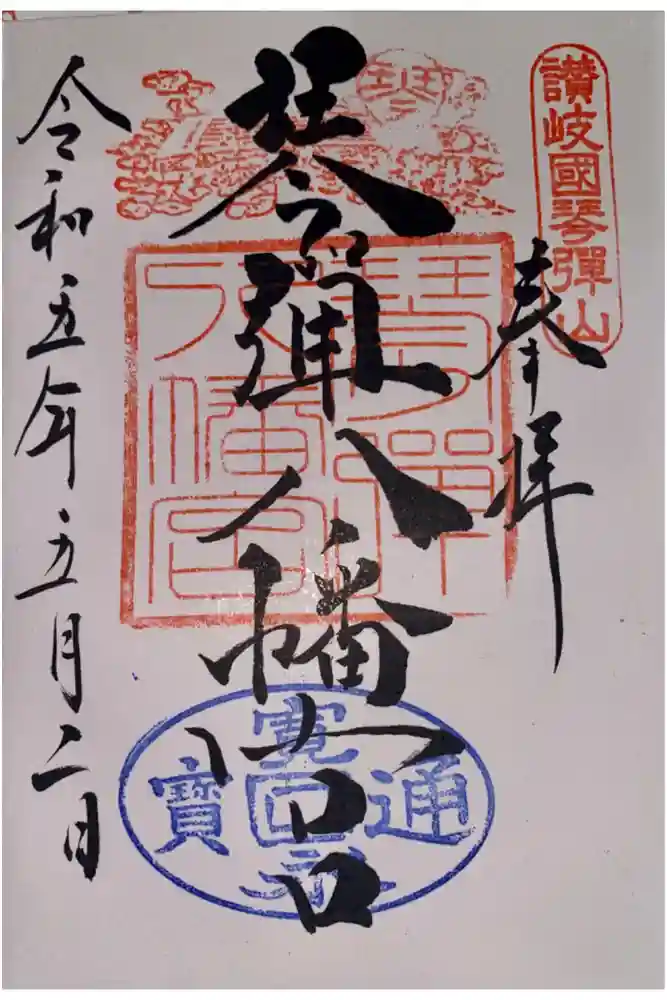 讃岐國琴彈山
奉拝
琴弾八幡宮
琴弾
八幡宮
琴
寛永通寳
令和五年五月二日